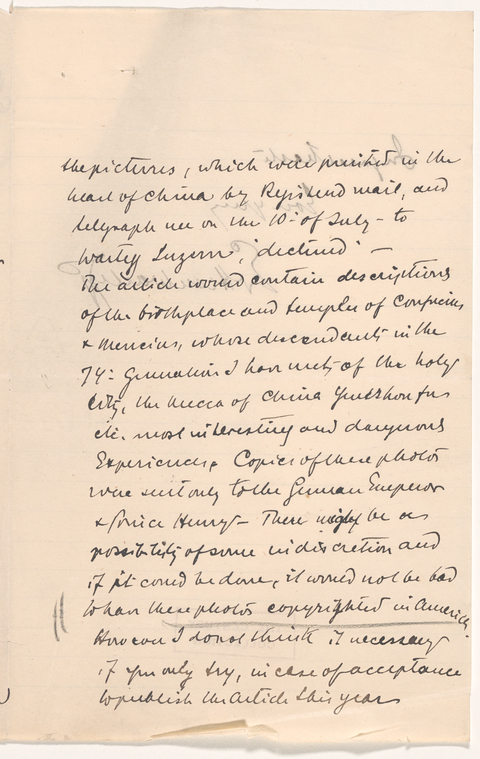 the pictures, which were printed in the
heart of China by Registered mail, and
telegraph me on the 10th of July - to
Luzern, "declined" -
The article would contain descriptions
of the birthplace and temples of Confucius
& Mencius, whose descendants in the
74: Generation I have met, of the holy
City, the Mecca of China
etc. most interesting and dangerous
Experiences. Copies of these photos
were sent only to the German Emperor
& Prince Henry - There might be a
possibility of some indiscretion and
if it could be done, it would not be bad
to have these photos copyrighted in America.
However I do not think it necessary
if you only try, in case of acceptance
to publish the article this year